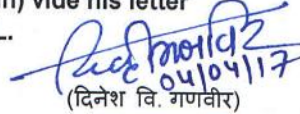 vide his letter
04/04/17
(दिनेश वि. गणवीर)